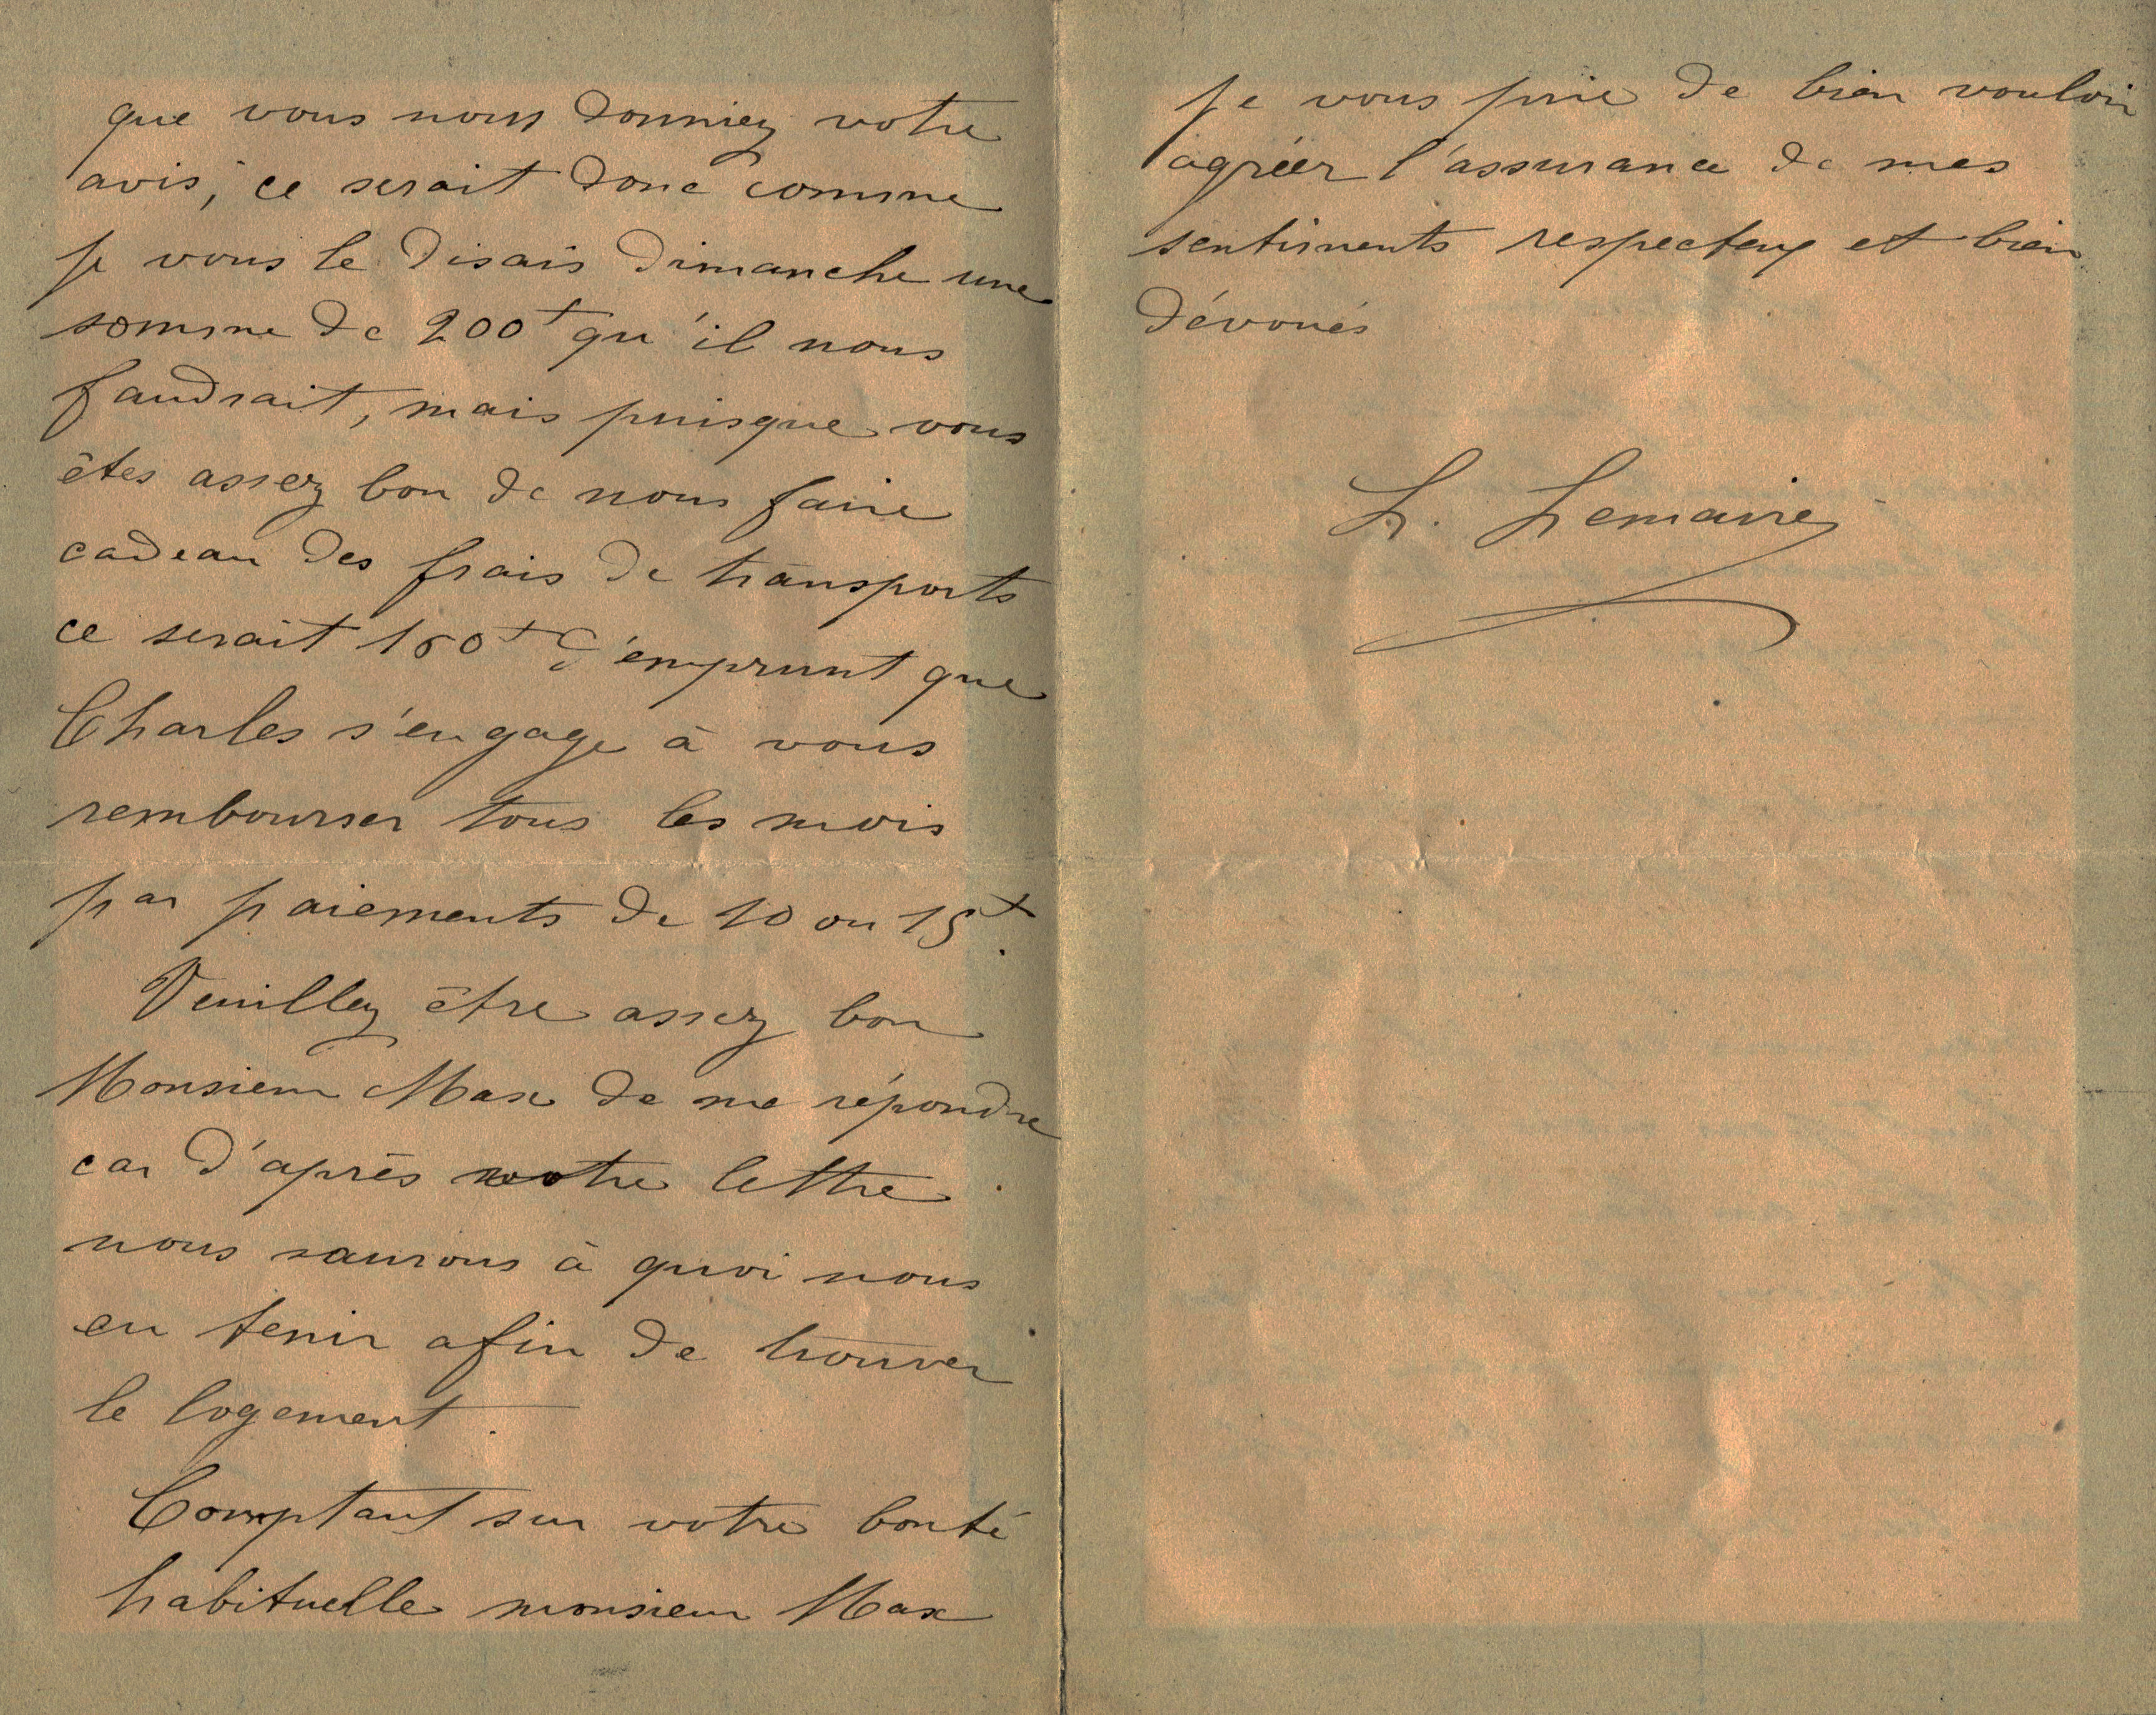 que vous nous donniez votre
avis, ce serait donc comme
je vous le disais dimanche une
somme de 200f qu'il nous
faudrait, mais puisque vous
êtes assez bon de nous faire
cadeau des frais de transports
ce serait d'emprunt que
Charles s'engage à vous
rembourser tous les mois
par paiements de 10 ou 15f.
Veuillez être assez bon
Monsieur Max de me répondre
car d'après votre lettre
nous saurons à quoi nous
en tenir afin de trouver
le logement.
Comptant sur votre bonté
habituelle monsieur Max
je vous prie de bien vouloir
agréer l'assurance de mes
sentiments respectueux et bien
dévoués
L. Lemaire